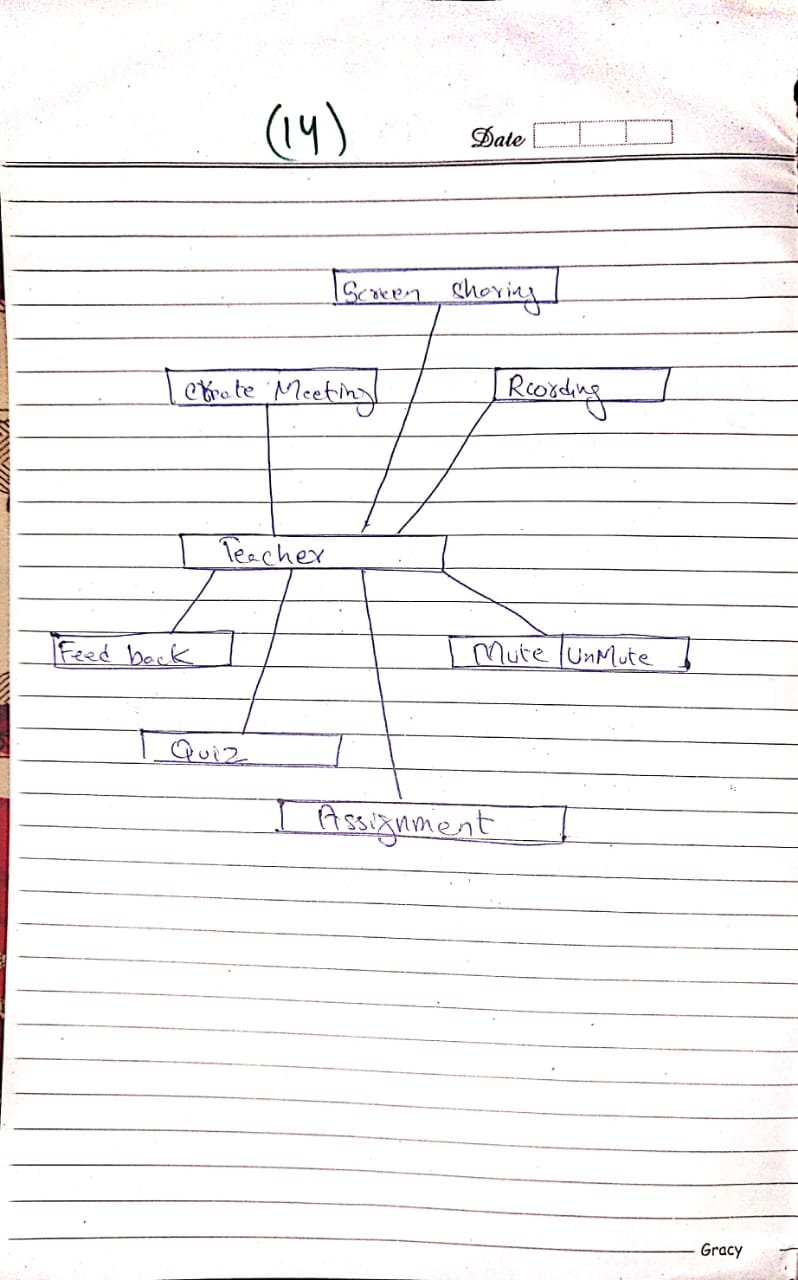 (14)
Date
Screen Sharing
Create Meeting
Rcording
Teacher
Feed back
Mute | UnMute
Quiz
Assignment
Gracy